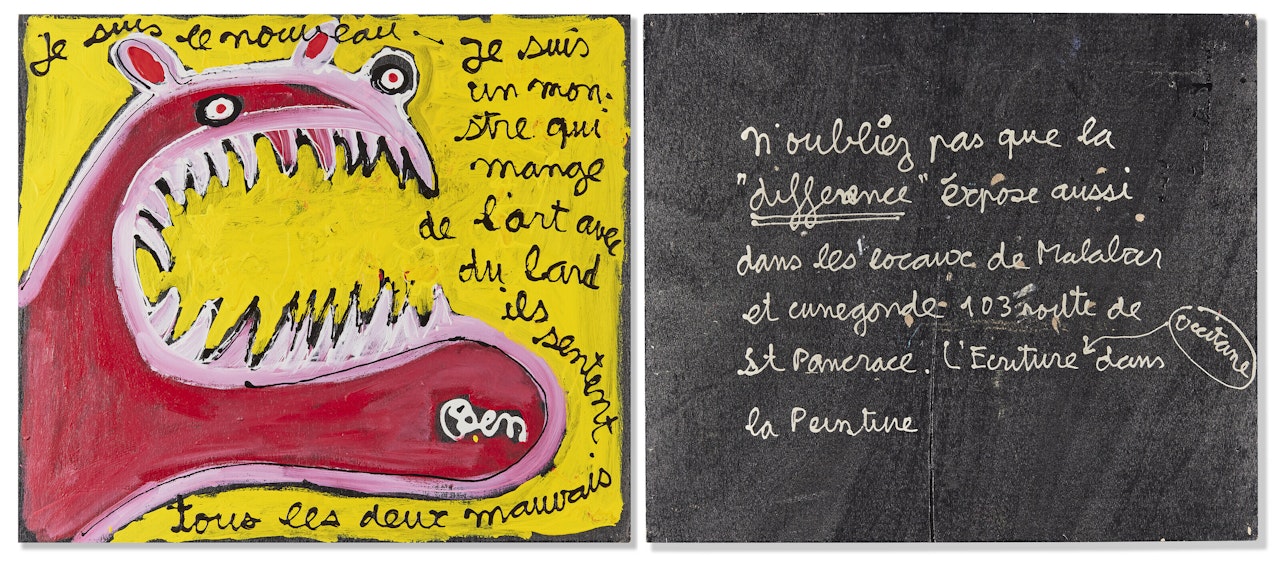 Je suis le nouveau - Je suis
un mon-
stre qui
mange
de l'art avec
du lard
ils
sentent
tous les deux mauvais
Ben
N'oubliez pas que la
"difference" éxpose aussi
dans les locaux de Malabar
et cunegonde 103 route de
St Pancrace. L'Ecriture dans
occitane
la Peinture